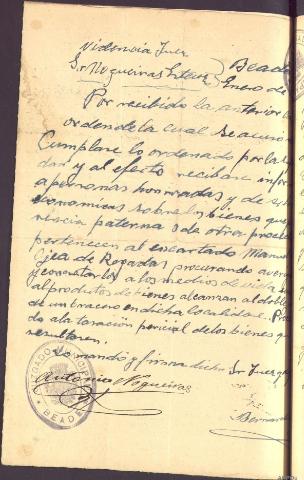 Videncia Juez
Sr Nogueiras
Beade
Enero de
Por recibida la anterior
orden de la cual se acusará
Cumplase lo ordenado por la
dan y al efecto recibase infor
a personas honradas y de
economicas sobre los bienes que
rencia paterna ó de otra proce
pertenecen al encartado Manuel
Ojea de Regadas procurando averi
y constatar los a los medios de vida
al producto de bienes alcanzan al doble
de un bracero en dicha localidad. Prac
da la tasación pericial de los bienes que
resultaren.
Lo mandó y firma dicho Sr Juez
Antonio Nogueiras
Bernardo
JUZGADO MUNICIPAL
BEADE